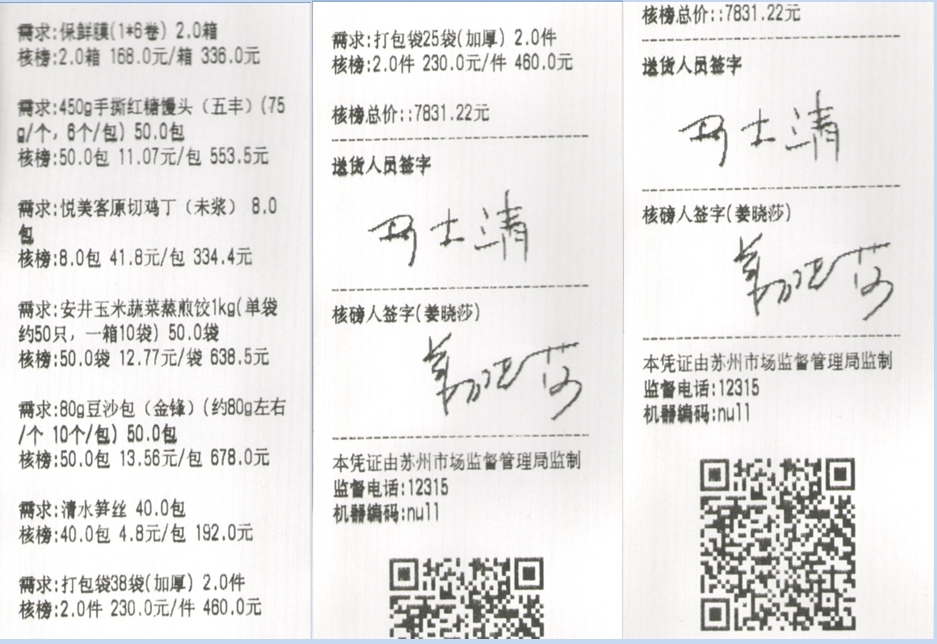 需求:保鲜膜(1*6卷) 2.0箱
核榜:2.0箱 168.0元/箱 336.0元
需求:450g手撕红糖馒头（五丰）(75
g/个，6个/包) 50.0包
核榜:50.0包 11.07元/包 553.5元
需求:悦美客原切鸡丁（未浆） 8.0
包
核榜:8.0包 41.8元/包 334.4元
需求:安井玉米蔬菜蒸煎饺1kg(单袋
约50只，一箱10袋) 50.0袋
核榜:50.0袋 12.77元/袋 638.5元
需求:80g豆沙包（金锋）(约80g左右
/个 10个/包) 50.0包
核榜:50.0包 13.56元/包 678.0元
需求:清水笋丝 40.0包
核榜:40.0包 4.8元/包 192.0元
需求:打包袋38袋(加厚) 2.0件
核榜:2.0件 230.0元/件 460.0元
需求:打包袋25袋(加厚) 2.0件
核榜:2.0件 230.0元/件 460.0元
核榜总价::7831.22元
送货人员签字
核磅人签字(姜晓莎)
本凭证由苏州市场监督管理局监制
监督电话:12315
机器编码:null
核榜总价::7831.22元
送货人员签字
核磅人签字(姜晓莎)
本凭证由苏州市场监督管理局监制
监督电话:12315
机器编码:null